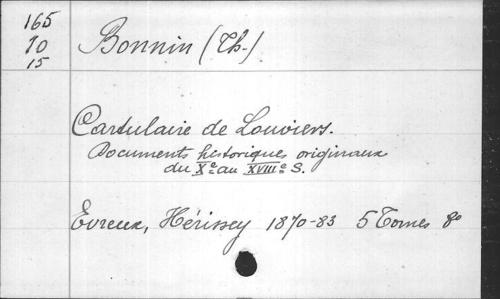 165
70
15
Bonnin (Th.)
Cartulaire de Louviers.
Documents historiques originaux
du Xe au XVIIIe S.
Evreux, Hérissey 1870-83 5 Tomes 8°